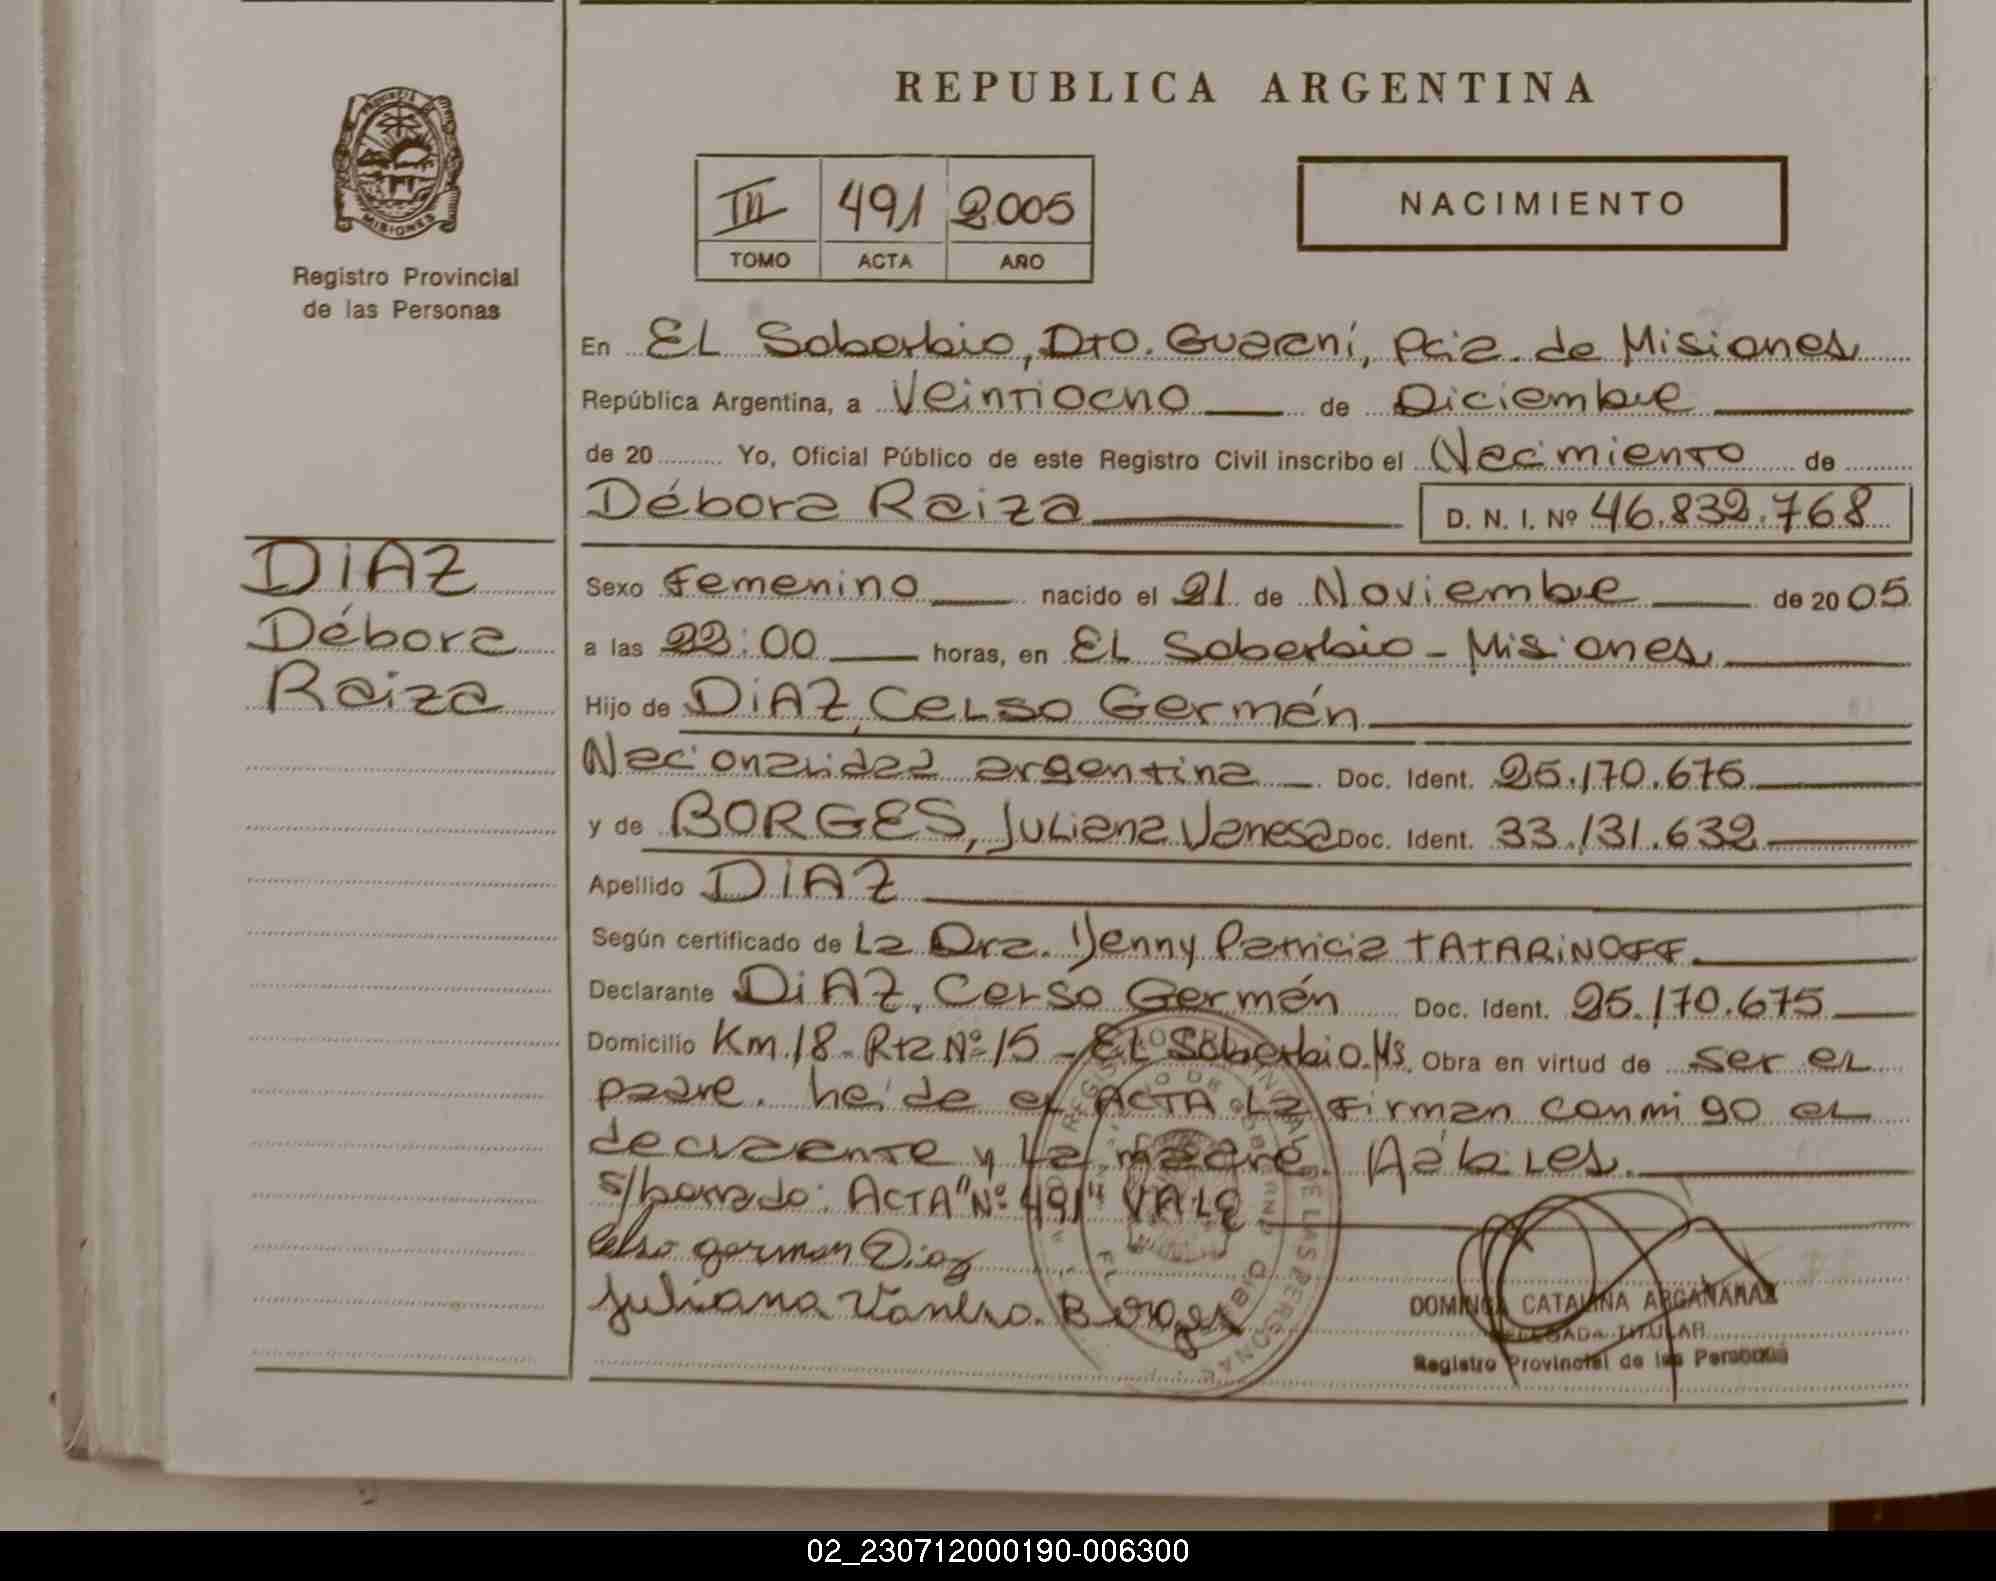 REPUBLICA ARGENTINA
PROVINCIA
MISIONES
Registro Provincial
de las Personas
III 491 2005
TOMO ACTA AÑO
NACIMIENTO
En EL Soberbio, Dto. Guaraní, Pcia. de Misiones
República Argentina, a Veintiocho de Diciembre
de 20 Yo, Oficial Público de este Registro Civil inscribo el Nacimiento de
Débora Raiza D. N. I. Nº 46.832.768
DIAZ
Débora
Raiza
Sexo Femenino nacido el 21 de Noviembre de 2005
a las 22:00 horas, en EL Soberbio - Misiones
Hijo de DIAZ, Celso Germén
Nacionalidad argentina Doc. Ident. 25.170.675
y de BORGES, Juliana Vanesa Doc. Ident. 33.131.632
Apellido DIAZ
Según certificado de La Dra. Yenny Patricia TATARINOFF
Declarante DIAZ, Celso Germén Doc. Ident. 25.170.675
Domicilio Km.18 - Rta Nº 15 - EL Soberbio. Ms. Obra en virtud de ser el
padre. heida el ACTA La firman conmigo el
declarante y La madre. Hábiles.
s/borrado: ACTA "Nº 491" VALE
Celso german Diaz
Juliana Vanesa Borges
DOMINGA CATALINA ARGAÑARAZ
DELEGADA TITULAR
Registro Provincial de las Personas
02_230712000190-006300